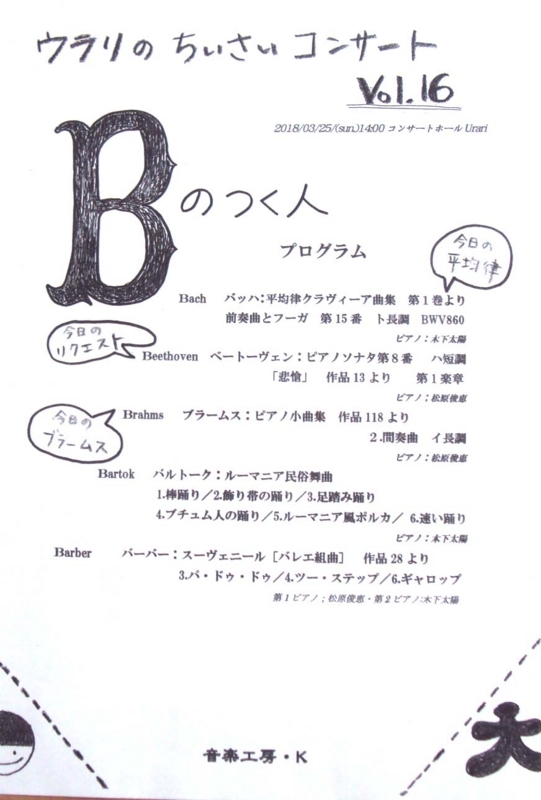 ウラリの ちいさい コンサート
Vol.16
2018/03/25/(sun.)14:00 コンサートホール Urari
Bのつく人
プログラム
今日の
平均律
Bach バッハ:平均律クラヴィーア曲集 第1巻より
前奏曲とフーガ 第15番 ト長調 BWV860
ピアノ:木下太陽
今日の
リクエスト
Beethoven ベートーヴェン:ピアノソナタ第8番 ハ短調
「悲愴」 作品13より 第1楽章
ピアノ:松原俊恵
今日の
ブラームス
Brahms ブラームス:ピアノ小曲集 作品118より
2.間奏曲 イ長調
ピアノ:松原俊恵
Bartok バルトーク:ルーマニア民俗舞曲
1.棒踊り/2.飾り帯の踊り/3.足踏み踊り
4.ブチュム人の踊り/5.ルーマニア風ポルカ/ 6.速い踊り
ピアノ:木下太陽
Barber バーバー:スーヴェニール[バレエ組曲] 作品28より
3.パ・ドゥ・ドゥ/4.ツー・ステップ/6.ギャロップ
第1ピアノ;松原俊恵・第2ピアノ:木下太陽
大
音楽工房・K